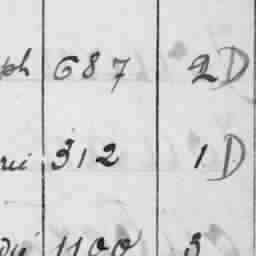 ph 687 2 D
rie 312 1 D
1100 3